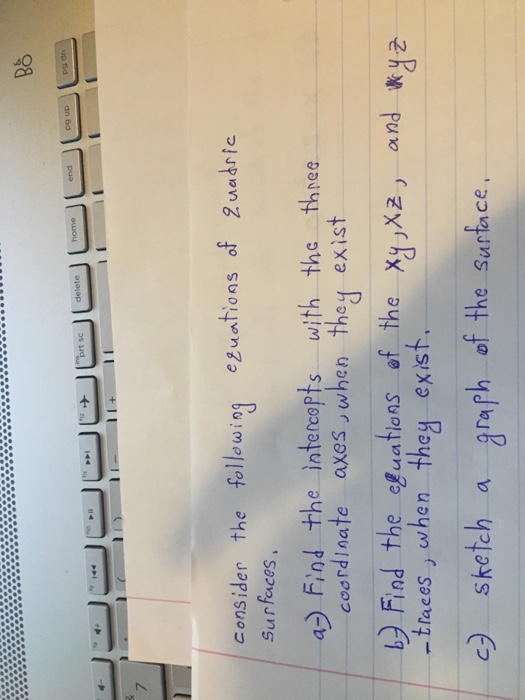 consider the following equations of quadric
surfaces.
a-) Find the intercepts with the three
coordinate axes, when they exist
b-) Find the equations of the xy, xz, and yz
-traces, when they exist.
c-) sketch a graph of the surface.
B&O
prt sc
delete
home
end
pg up
pg dn
7